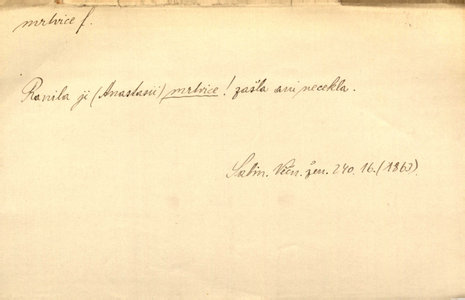 mrtvice f.
Ranila ji (Anastasii) mrtvice! zašla ani necekla.
Sabin. Věčn. žen. 240. 16. (1863)